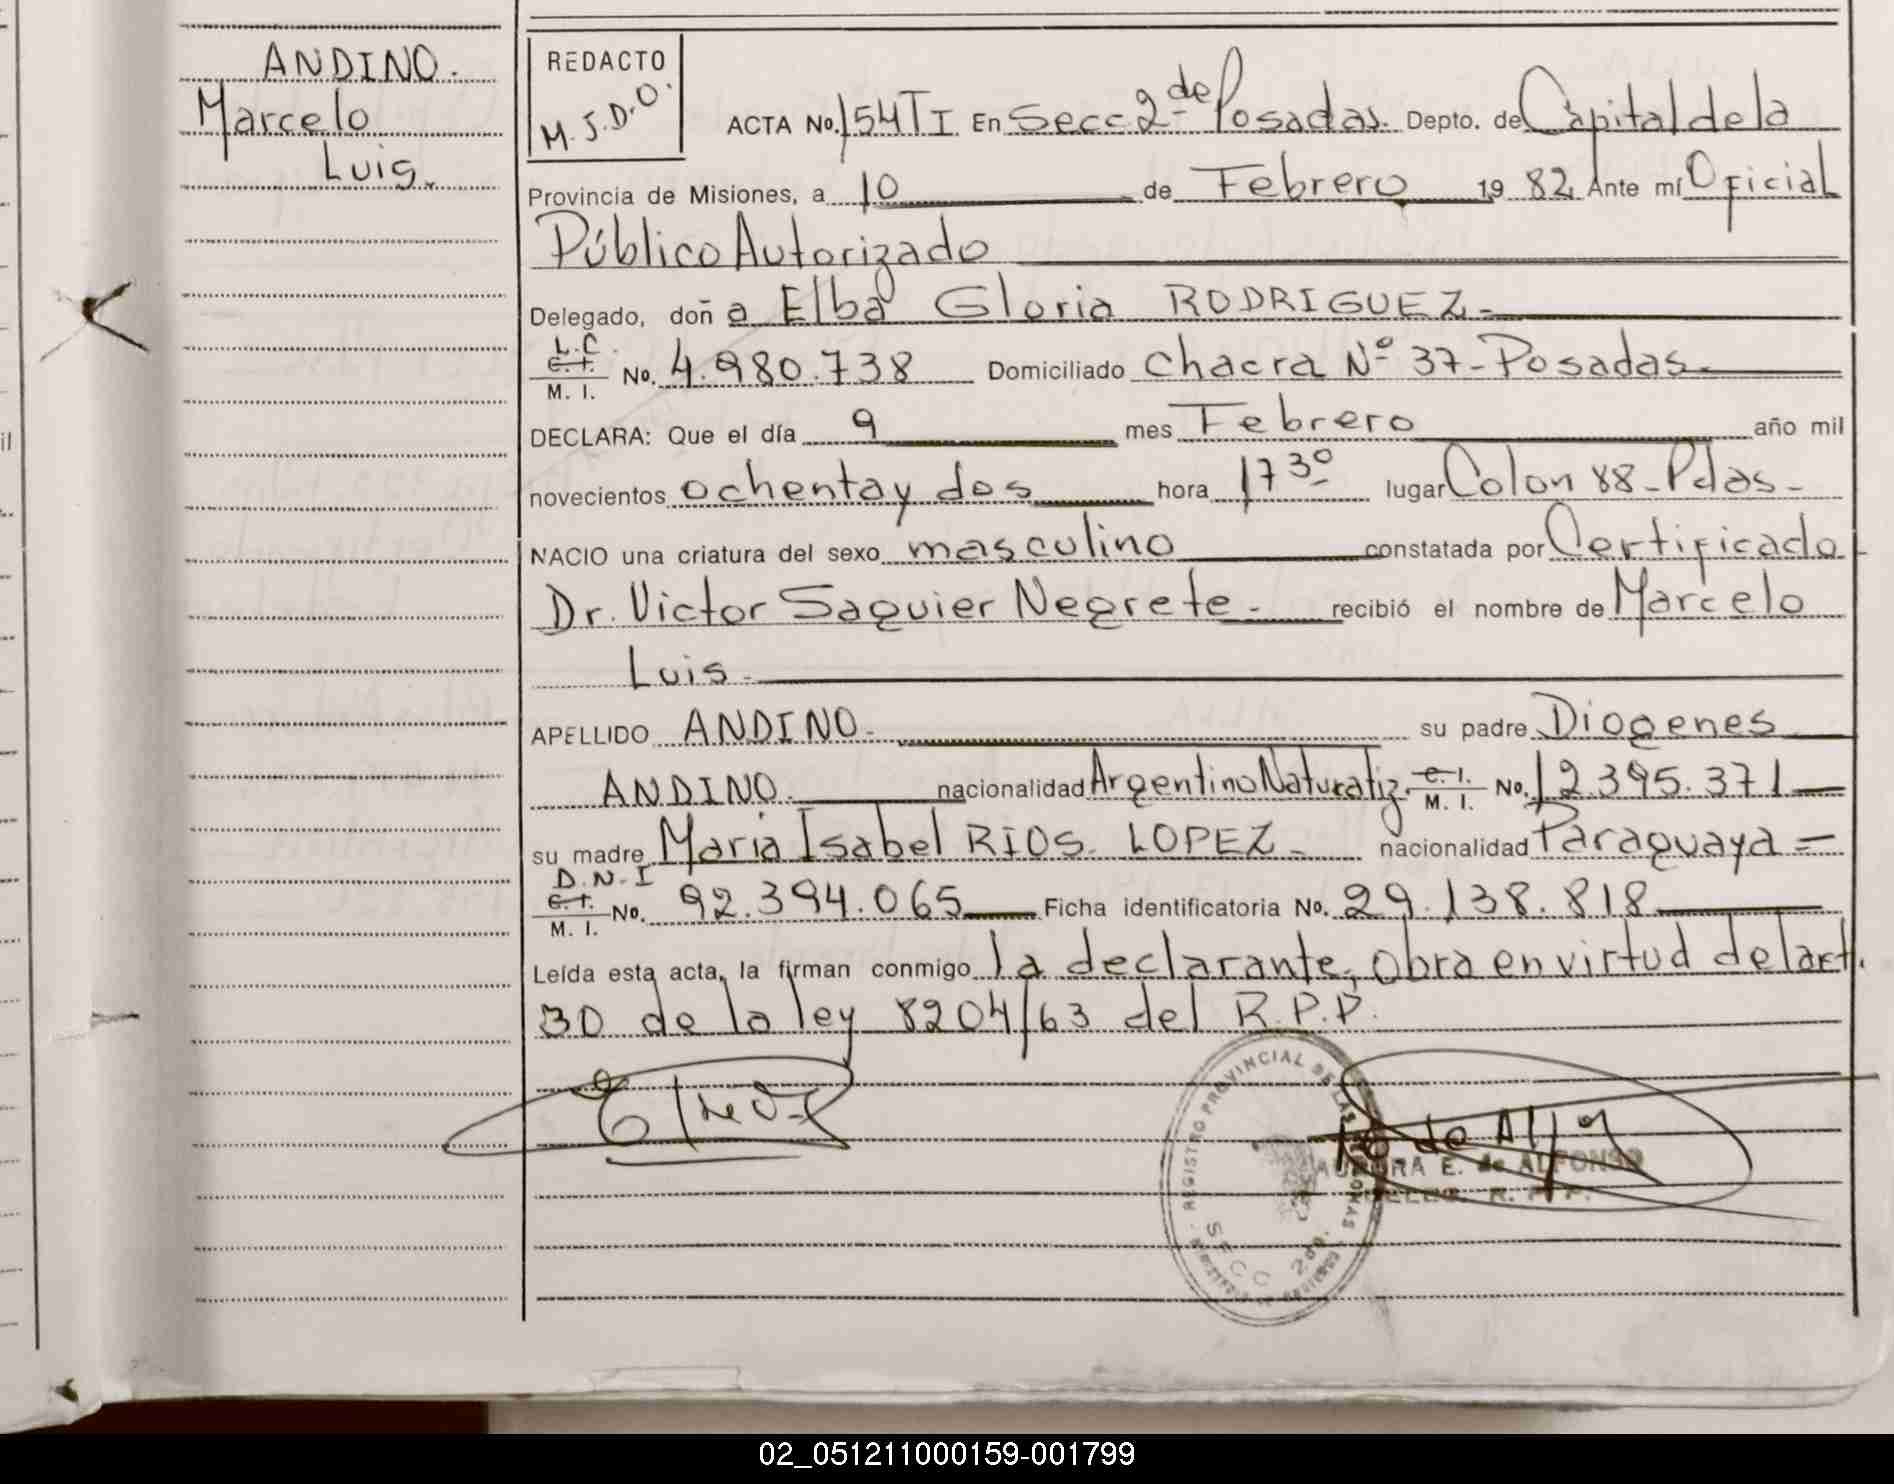 ANDINO.
Marcelo
Luis.
REDACTO
M.J.D.O.
ACTA No. 154 TI En Secc 2ª de Posadas. Depto. de Capital de la
Provincia de Misiones, a 10 de Febrero 19 82 Ante mí Oficial
Público Autorizado
Delegado, doñ a Elba Gloria RODRIGUEZ.-
L.C.
C.I.
M. I. No. 4.980.738 Domiciliado Chacra Nº 37-Posadas.
DECLARA: Que el día 9 mes Febrero año mil
novecientos ochenta y dos hora 17 30 lugar Colon 88-Pdas-
NACIO una criatura del sexo masculino constatada por Certificado
Dr. Victor Saguier Negrete.- recibió el nombre de Marcelo
Luis.-
APELLIDO ANDINO.- su padre Diogenes
ANDINO. nacionalidad Argentino Naturaliz. C.I. M. I. No. 12.395.371
su madre Maria Isabel RIOS. LOPEZ.- nacionalidad Paraguaya =
D.N.I
C.I.
M. I. No. 92.394.065 Ficha identificatoria No. 29.138.818
Leída esta acta, la firman conmigo la declarante, obra en virtud del art.
30 de la ley 8204/63 del R.P.P.
REGISTRO PROVINCIAL DE LAS PERSONAS
SECC 2da.
AURORA E. de ALFONSO
R. P. P.
02_051211000159-001799